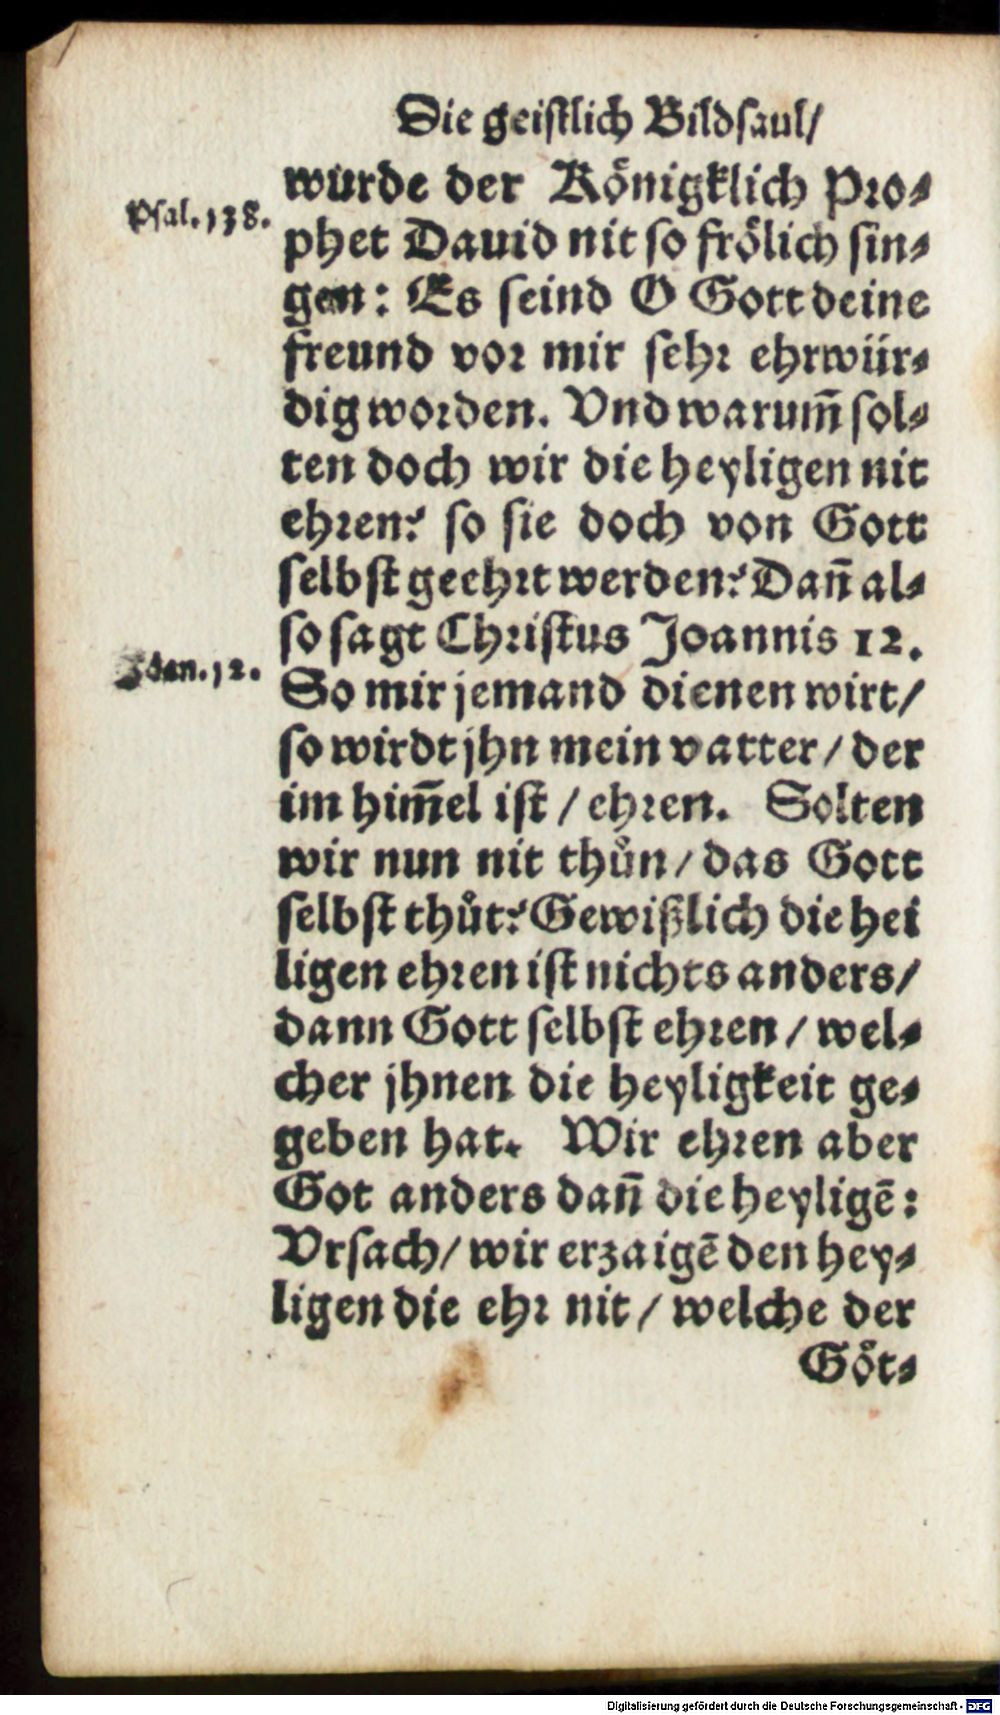 Die geistlich Bildsaul/
wurde der Königklich Pro⸗
Psal. 138.
phet Dauid nit so frölich sin⸗
gen: Es seind O Gott deine
freund vor mir sehr ehrwür⸗
dig worden. Vnd warum̃ sol⸗
ten doch wir die heyligen nit
ehren? so sie doch von Gott
selbst geehrt werden? Dañ al⸗
so sagt Christus Joannis 12.
Joan. 12.
So mir jemand dienen wirt/
so wirdt jhn mein vatter / der
im him̃el ist / ehren. Solten
wir nun nit thůn / das Gott
selbst thůt? Gewißlich die hei
ligen ehren ist nichts anders/
dann Gott selbst ehren / wel⸗
cher jhnen die heyligkeit ge⸗
geben hat. Wir ehren aber
Got anders dañ die heyligẽ:
Vrsach/ wir erzaigẽ den hey⸗
ligen die ehr nit / welche der
Göt⸗
Digitalisierung gefördert durch die Deutsche Forschungsgemeinschaft - DFG